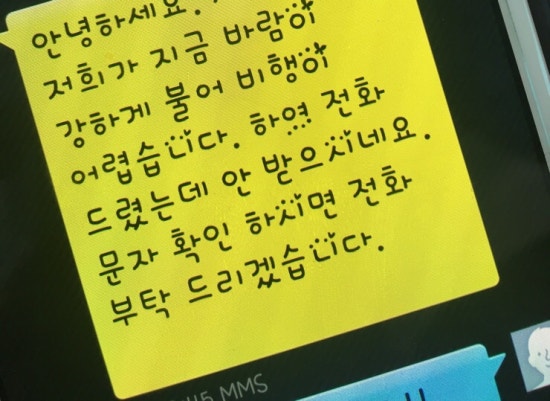 안녕하세요.
저희가 지금 바람이
강하게 불어 비행이
어렵습니다. 하여 전화
드렸는데 안 받으시네요.
문자 확인 하시면 전화
부탁 드리겠습니다.
MMS